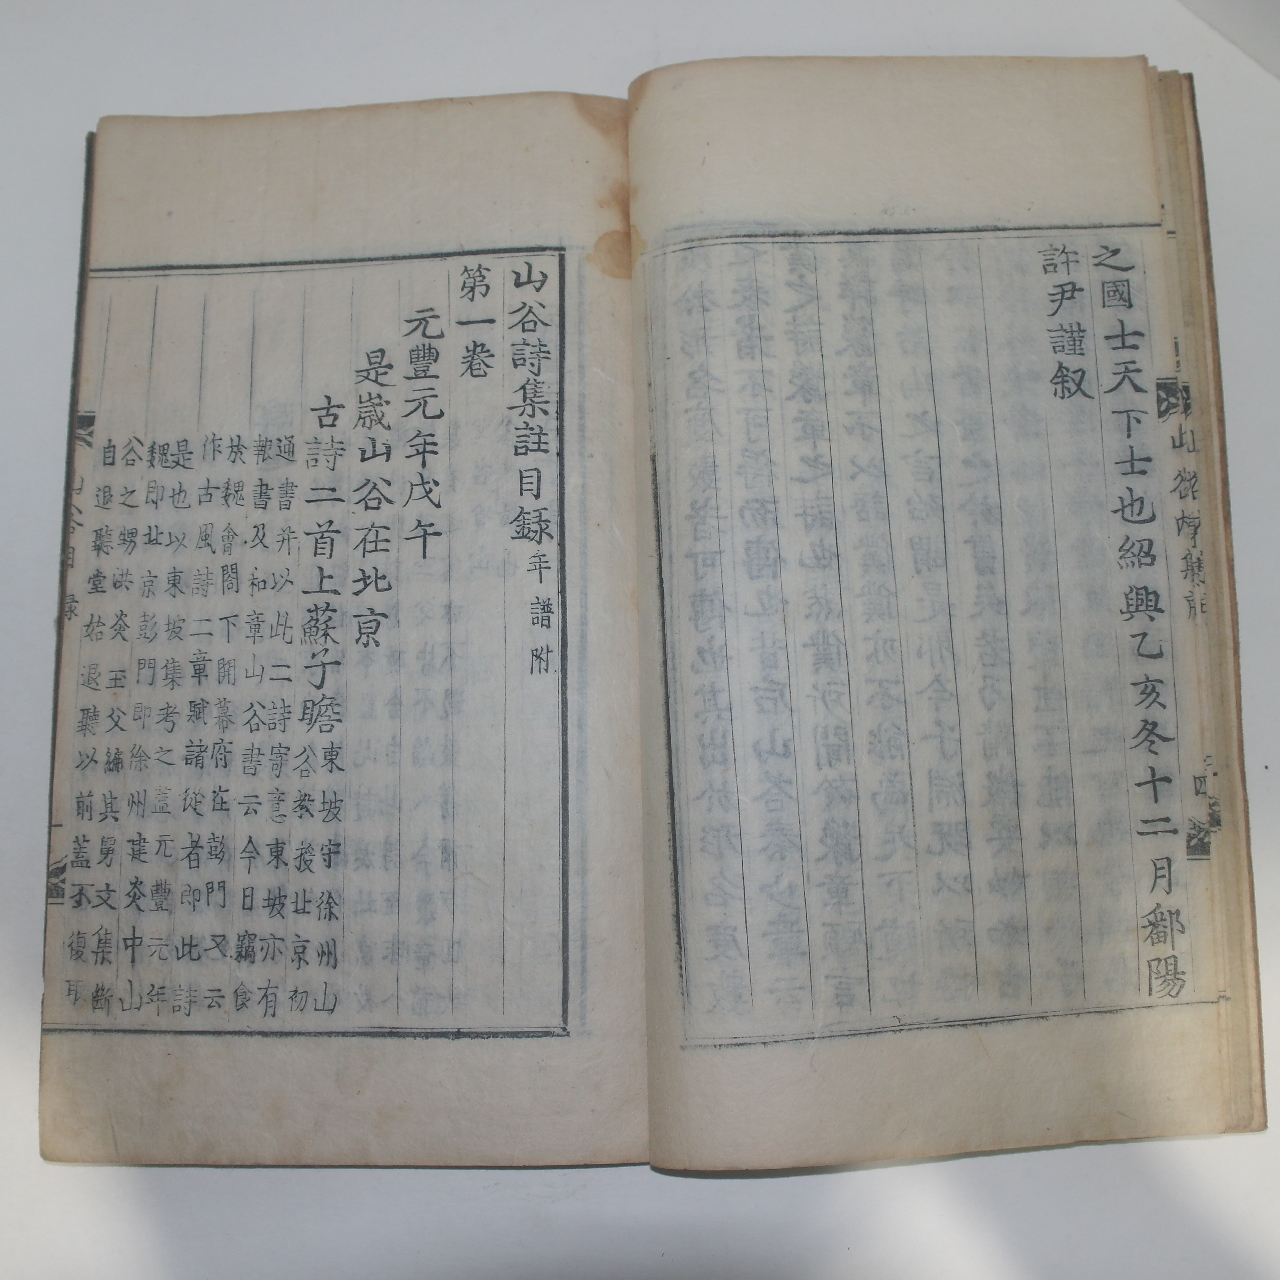 之國士天下士也紹興乙亥冬十二月鄱陽
許尹謹叙
山谷詩集註目録年譜附
第一卷
元豐元年戊午
是歲山谷在北京
古詩二首上蘇子瞻
東坡守徐州山
谷教授北京初
通書并以此二詩寄意東坡亦有
報書及和章山谷書云今日竊食
於魏會閤下開幕府在彭門又云
作古風詩二章賦諸從者即此詩
是也以東坡集考之蓋元豐元年
魏即北京彭門即徐州建炎中山
谷之甥洪炎至父編其舅文集斷
自退聽堂始退聽以前蓋不復取
山谷目録